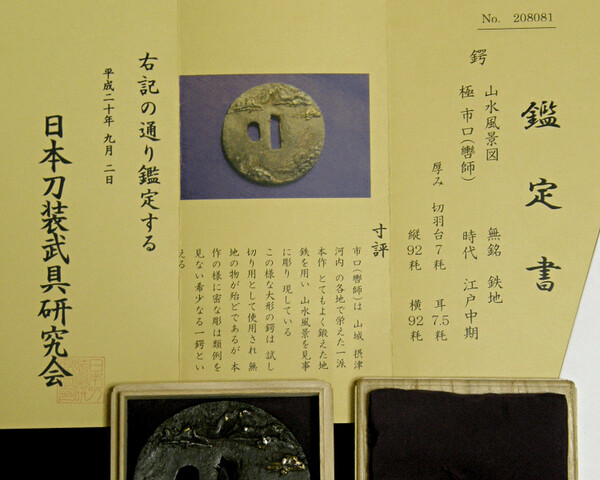 No. 208081
鑑定書
鍔
山水風景図 無銘 鉄地
極 市口(轡師) 時代 江戸中期
厚み 切羽台7粍 耳7.5粍
縦92粍 横92粍
寸評
市口(轡師)は 山城 摂津
河内 の各地で栄えた一派
本作 とてもよく鍛えた地
鉄を用い 山水風景を見事
に彫り 現している
この様な大形の鍔は 試し
切り用として使用され 無
地の物が殆どであるが 本
作の様に密な彫は類例を
見ない希少なる一鍔とい
える
右記の通り鑑定する
平成二十年 九月 二日
日本刀装武具研究会